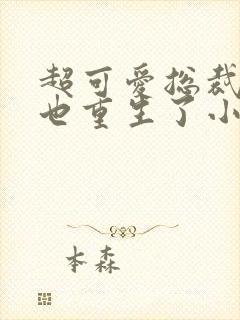 超可爱总裁
也重生了小
本森